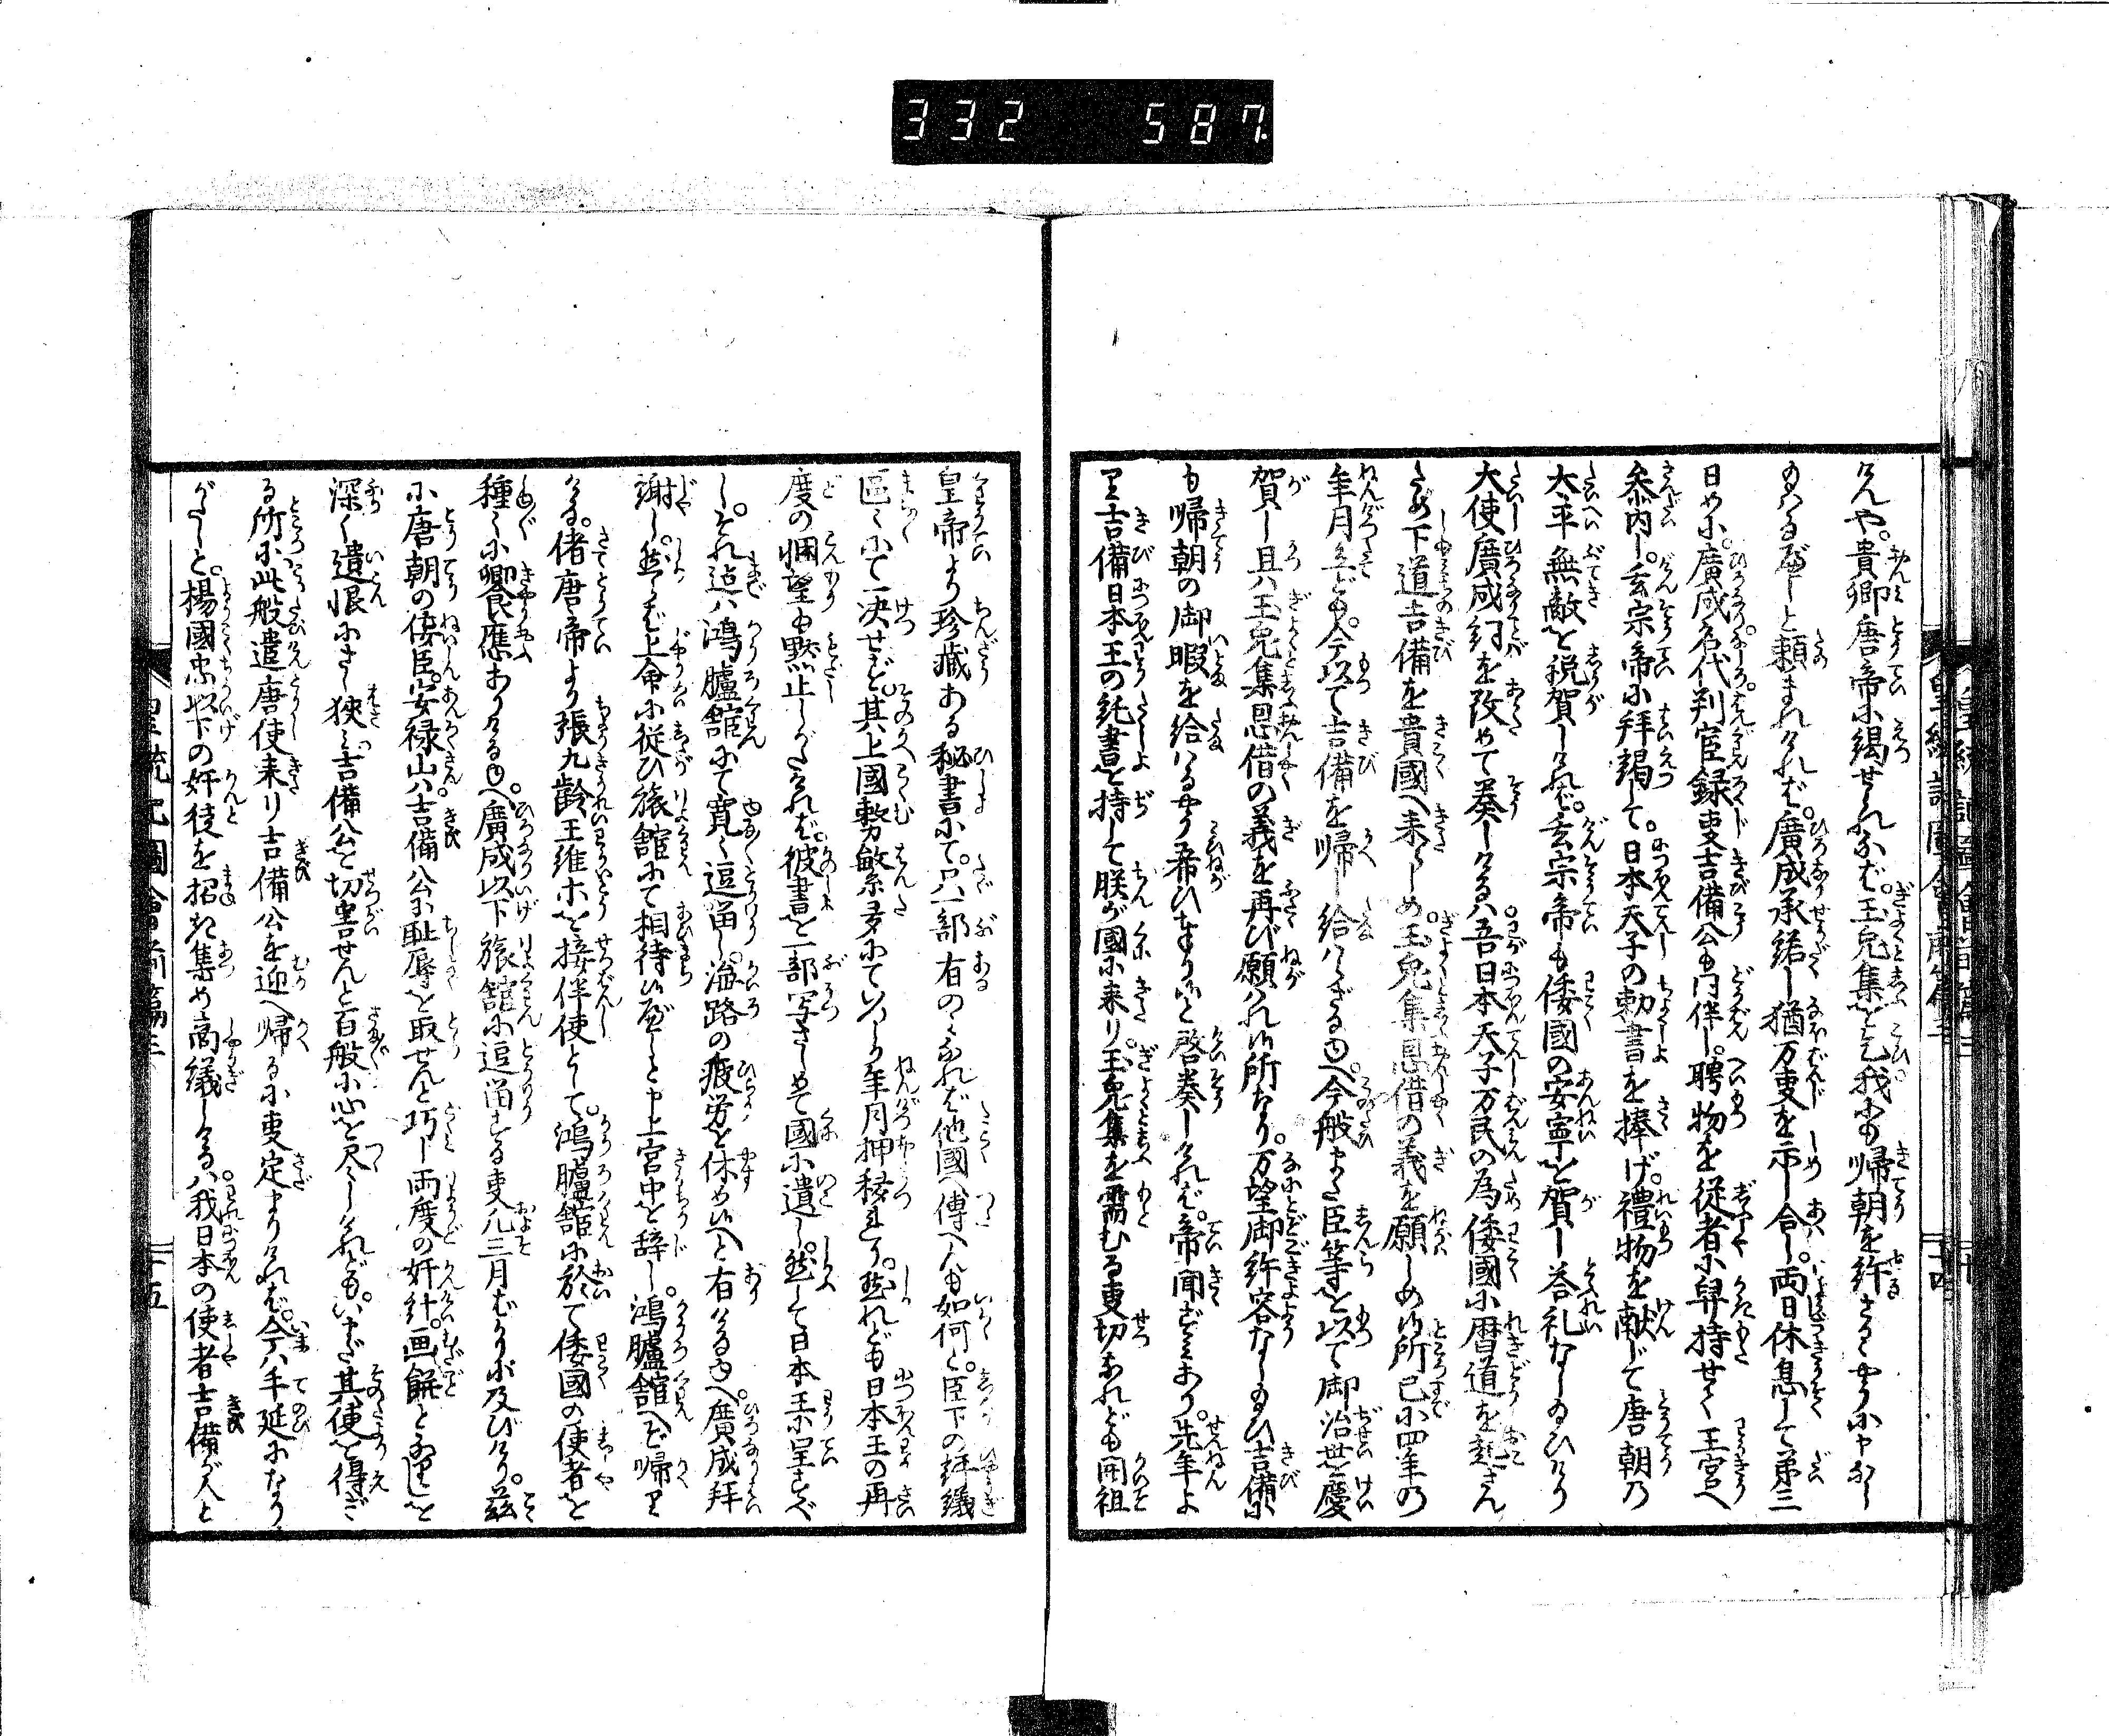 332 587
けんや。貴卿唐帝に謁せられなば。玉兎集を乞。我にも帰朝を許さるゝやうに申なし
のべるべしと頼まれければ。廣成承諾し猶万事を示し合し。両日休息して第三
日めに。廣成名代判官録事吉備公も同伴し。聘物を従者に舁持せて王宮へ
参内し。玄宗帝に拝謁して。日本天子の勅書を捧げ。禮物を献じて唐朝の
大平無敵を祝賀しければ。玄宗帝も倭國の安寧を賀し答礼なし給ひけり
大使廣成詞を改めて奏しけるは。吾日本天子万民の為倭國に暦道を起さん
ため下道吉備を貴國へ来らしめ。玉兎集恩借の義を願しめ候所已に四年の
年月経ども。今以て吉備を帰し給はざるゆへ。今般また臣等を以て御治世を慶
賀し且は玉兎集恩借の義を再び願はれ候所なり。万望御許容なし給ひ吉備に
も帰朝の御暇を給はるやう希ひ奉り候と啓奏しければ。帝聞ずみあり。先年よ
り吉備日本王の純書を持して朕が國に来り。玉兎集を需むる事切なれども開祖
皇帝より珍藏ある秘書にて。只一部有のみなれば他國へ傳へんも如何と。臣下の評議
區々にて一决せず。其上國務繁多にていつしか年月押移れり。然れども日本王の再
度の悃望も黙止しがたければ。彼書を一部写さしめて國に遺し。然して日本王に呈すべ
し。それ迠は鴻臚舘にて寛々逗畄し。海路の疲労を休め候へと有けるゆへ。廣成拝
謝し。然らば上命に従ひ旅舘にて相待候べしと申上宮中を辞し。鴻臚舘へぞ帰り
ける。偖唐帝より張九齢王維ホを接伴使として。鴻臚舘に於て倭國の使者を
種々に饗應ありけるゆへ。廣成以下旅舘に逗畄する事凡三月ばかりに及びけり。茲
に唐朝の佞臣。安禄山は吉備公に耻辱を取せんと巧し両度の奸計。画餅となりしを
深く遺恨にさし狭み。吉備公を切害せんと百般に心を尽しけれども。いまだ其便を得ざ
る所に此般遣唐使来り吉備公を迎へ帰るに事定まりければ。今は手延になり
がたしと。楊國忠以下の奸徒を招き集め商議しけるは。我日本の使者吉備が人と
皇統記圖會前篇三
十五